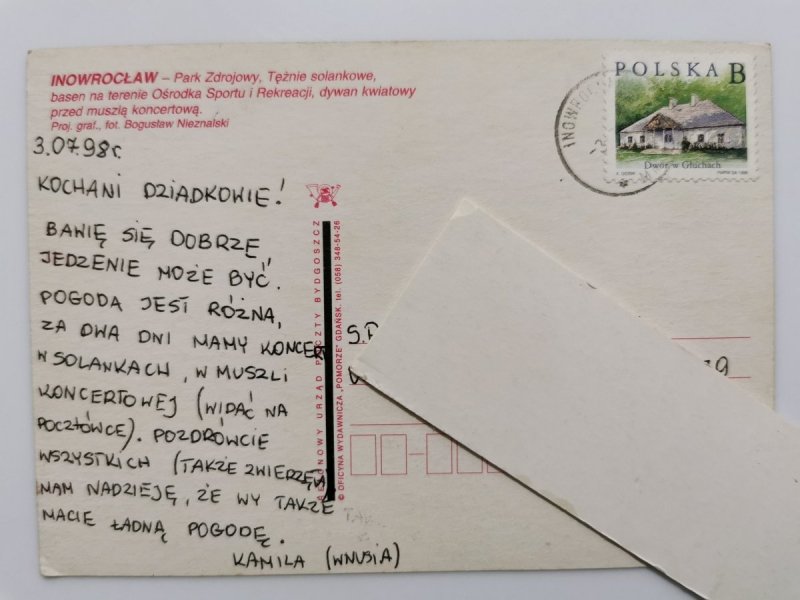 INOWROCŁAW – Park Zdrojowy, Tężnie solankowe,
basen na terenie Ośrodka Sportu i Rekreacji, dywan kwiatowy
przed muszlą koncertową.
Proj. graf., fot. Bogusław Nieznalski
3.07.98r.
KOCHANI DZIADKOWIE!
BAWIĘ SIĘ DOBRZE,
JEDZENIE MOŻE BYĆ.
POGODA JEST RÓŻNA,
ZA DWA DNI MAMY KONCERT
W SOLANKACH, W MUSZLI
KONCERTOWEJ (WIDAĆ NA
POCZTÓWCE). POZDRÓWCIE
WSZYSTKICH (TAKŻE ZWIERZĘTA)
MAM NADZIEJĘ, ŻE WY TAKŻE
MACIE ŁADNĄ POGODĘ.
KAMILA (WNUSIA)
REJONOWY URZĄD POCZTY BYDGOSZCZ
© OFICYNA WYDAWNICZA „POMORZE" GDAŃSK. tel. (058) 348-54-26
POLSKA B
Dwór w Głuchach
INOWROC
S.P
19